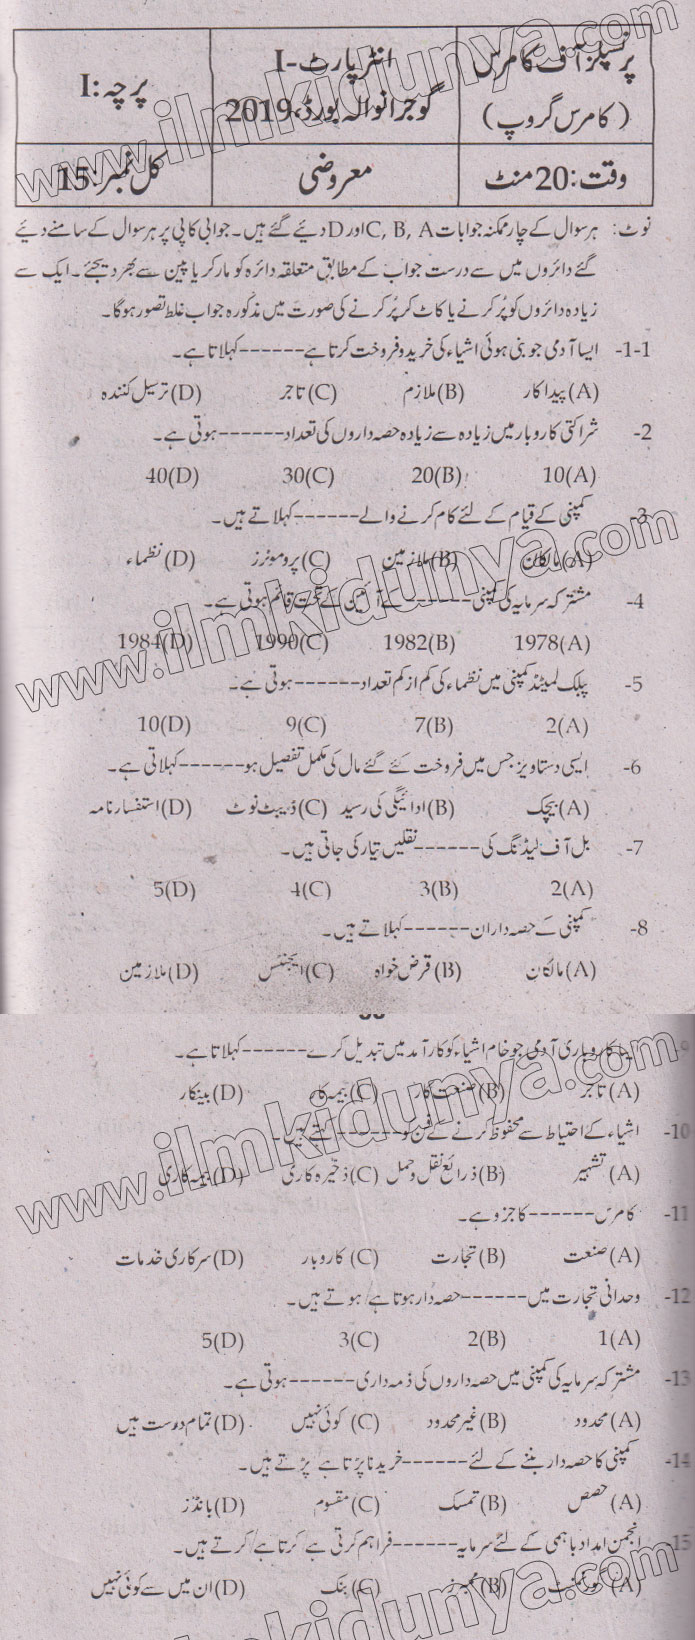 پرنسپلز آف کامرس
(کامرس گروپ)
انٹر پارٹ-I
گوجرانوالہ بورڈ، 2019
پرچہ: I
وقت: 20 منٹ
معروضی
کل نمبر: 15
نوٹ: ہر سوال کے چار ممکنہ جوابات C, B, A اور D دیئے گئے ہیں۔ جوابی کاپی پر ہر سوال کے سامنے دیئے
گئے دائروں میں سے درست جواب کے مطابق متعلقہ دائرہ کو مارکر یا پین سے بھر دیجئے۔ ایک سے
زیادہ دائروں کو پُر کرنے یا کاٹ کر پُر کرنے کی صورت میں مذکورہ جواب غلط تصور ہوگا۔
1-1- ایسا آدمی جو بنی ہوئی اشیاء کی خرید و فروخت کرتا ہے ------ کہلاتا ہے۔
(A) پیداکار (B) ملازم (C) تاجر (D) ترسیل کنندہ
2- شراکتی کاروبار میں زیادہ سے زیادہ حصہ داروں کی تعداد ------ ہوتی ہے۔
(A) 10 (B) 20 (C) 30 (D) 40
3- کمپنی کے قیام کے لئے کام کرنے والے ------ کہلاتے ہیں۔
(A) مالکان (B) ملازمین (C) پروموٹرز (D) نظماء
4- مشترکہ سرمایہ کی کمپنی ------ کے آئین کے تحت قائم ہوتی ہے۔
(A) 1978 (B) 1982 (C) 1990 (D) 1984
5- پبلک لمیٹڈ کمپنی میں نظماء کی کم از کم تعداد ------ ہوتی ہے۔
(A) 2 (B) 7 (C) 9 (D) 10
6- ایسی دستاویز جس میں فروخت کئے گئے مال کی مکمل تفصیل ہو ------ کہلاتی ہے۔
(A) بیچک (B) ادائیگی کی رسید (C) ڈیبٹ نوٹ (D) استفسار نامہ
7- بل آف لیڈنگ کی ------ نقلیں تیار کی جاتی ہیں۔
(A) 2 (B) 3 (C) 4 (D) 5
8- کمپنی کے حصہ داران ------ کہلاتے ہیں۔
(A) مالکان (B) قرض خواہ (C) ایجنٹس (D) ملازمین
9- ایسا کاروباری آدمی جو خام اشیاء کو کارآمد میں تبدیل کرے ------ کہلاتا ہے۔
(A) تاجر (B) صنعت کار (C) بیمہ کار (D) بینکار
10- اشیاء کے احتیاط سے محفوظ کرنے کے فن کو ------ کہتے ہیں۔
(A) تشہیر (B) ذرائع نقل و حمل (C) ذخیرہ کاری (D) بیمہ کاری
11- کامرس ------ کا جزو ہے۔
(A) صنعت (B) تجارت (C) کاروبار (D) سرکاری خدمات
12- وحدانی تجارت میں ------ حصہ دار ہوتا ہے/ ہوتے ہیں۔
(A) 1 (B) 2 (C) 3 (D) 5
13- مشترکہ سرمایہ کی کمپنی میں حصہ داروں کی ذمہ داری ------ ہوتی ہے۔
(A) محدود (B) غیر محدود (C) کوئی نہیں (D) تمام دوست ہیں
14- کمپنی کا حصہ دار بننے کے لئے ------ خریدنا پڑتا ہے/ پڑتے ہیں۔
(A) حصص (B) تمسک (C) مقسوم (D) بانڈز
15- انجمن امداد باہمی کے لئے سرمایہ ------ فراہم کرتی ہے/ کرتا ہے/ کرتے ہیں۔
(A) گورنمنٹ (B) ممبرز (C) بنک (D) ان میں سے کوئی نہیں
www.ilmkidunya.com
www.ilmkidunya.com
www.ilmkidunya.com
ilmkidunya.com